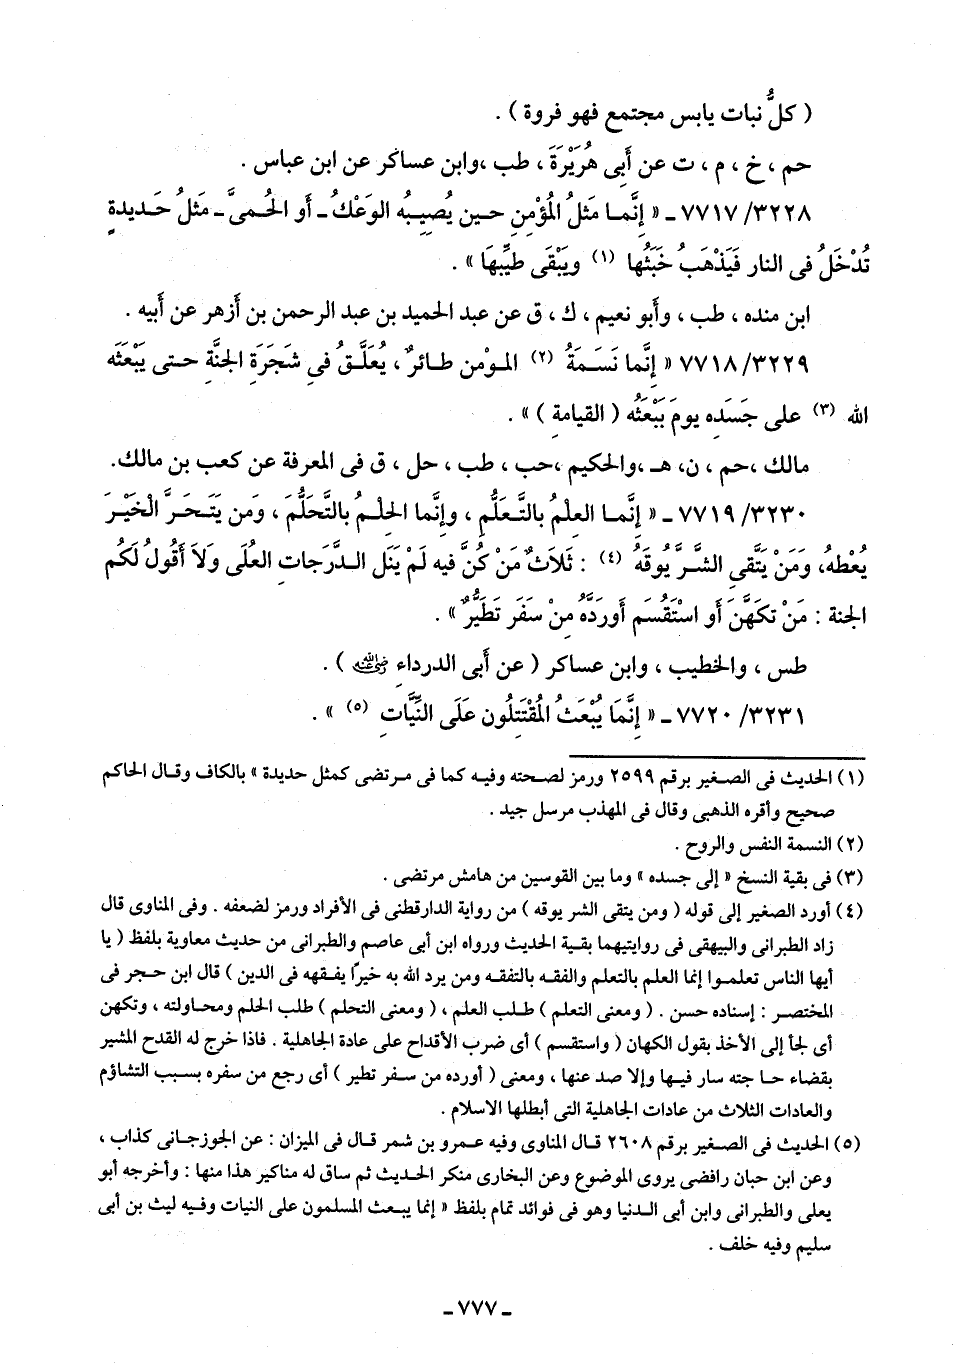 ( كلُّ نبات يابس مجتمع فهو فروة ) .
حم ، خ ، م ، ت عن أَبِى هُرَيْرَةَ ، طب ،وابن عساكر عن ابن عباس .
٧٧١٧/٣٢٢٨ ـ « إِنَّمـا مَثَلُ المُؤْمنِ حـين يُصِيبُه الوَعْكُ ـ أَو الحُـمىَّ ـ مَثَلُ حَـديدةٍ
تُدْخَلُ فى النار فَيَذْهَبُ خَبَثُها (١) ويَبْقَى طيِّبهَا » .
ابن منده ، طب ، وأَبو نعيم ، ك ، ق عن عبد الحميد بن عبد الرحمن بن أَزهر عن أَبيه .
٧٧١٨/٣٢٢٩ « إِنَّما نَسَـمَةُ (٢) المـؤْمن طـائرٌ ، يُعَلَّـقُ فىِ شَجَرَةِ الجنَّةِ حتـى يَبْعَثَه
الله (٣) على جَسَدِه يومَ يَبْعَثُه ( القيامةِ ) » .
مالك ،حم ، ن، هـ ،والحكيم ،حب ، طب ، حل ، ق فى المعرفة عن كعب بن مالك.
٧٧١٩/٣٢٣٠ ـ « إِنَّمـا العِلْمُ بالتَّـعلُّمِ ، وإِنَّما الحِلْـمُ بالتَّحلُّمِ ، وَمن يَتَـحَرَّ الْخَيْـرَ
يُعْطَهُ، وَمَنْ يَتَّقىِ الشَّرَّ يُوقَهُ (٤) : ثَلَاثٌ مَنْ كُنَّ فيه لَمْ يَنَلِ الـدَّرَجاتِ العُلَى وَلَا أَقُولُ لَكُم
الجنة : مَنْ تكَهَّنَ أَو اسْتَقْسَم أَورَدَّهُ مِنْ سَفَر تَطَيُّرٌ » .
طس ، والخطيب ، وابن عساكر ( عن أَبِى الدرداءِ رضي الله عنه ) .
٧٧٢٠/٣٢٣١ ـ « إِنَّمَا يُبْعَثُ المُقْتَتِلُون عَلَى النِّيَّاتِ (٥) » .
(١) الحديث فى الصـغير برقم ٢٥٩٩ ورمز لصـحته وفيـه كما فى مـرتضى كمثل حديدة » بالكاف وقـال الحاكم
صحيح وأقره الذهبى وقال فى المهذب مرسل جيد .
(٢) النسمة النفس والروح .
(٣) فى بقية النسخ « إلى جسده » وما بين القوسين من هامش مرتضى .
(٤) أورد الصغير إلى قوله ( ومن يتقى الشر يوقه ) من رواية الدارقطنى فى الأفراد ورمز لضعفه . وفى المناوى قال
زاد الطبرانى والبيهقى فى روايتيهما بقيـة الحديث ورواه ابن أبى عاصم والطبرانى من حديث معاوية بلفظ ( يا
أيها الناس تعلمـوا إنما العلم بالتعلم والفقـه بالتفقـه ومن يرد الله به خيرًا يفـقهه فى الدين ) قال ابن حـجر فى
المختصـر : إسناده حسن . ( ومعنى التعلم ) طـلب العلم ، ( ومعنى التحلم ) طلب الحلم ومحـاولته ، وتكهن
أى لجأ إلى الأخذ بقول الكهان ( واستقسم ) أى ضرب الأقداح على عادة الجاهلية . فاذا خرج له القدح المشير
بقضاء حـا جته سار فيـها وإلا صد عنها ، ومعنى ( أورده من سـفر تطير ) أى رجع من سفره بسـبب التشاؤم
والعادات الثلاث من عادات الجاهلية التى أبطلها الاسلام .
(٥) الحديث فى الصـغير برقـم ٢٦٠٨ قـال المناوى وفيه عـمرو بن شمر قـال فى الميزان : عن الجوزجـانى كذاب ،
وعن ابن حبان رافضى يروى الموضوع وعن البخارى منكر الحـديث ثم ساق له مناكير هذا منها : وأخرجه أبو
يعلى والطبرانى وابن أبى الـدنيا وهو فى فوائد تمام بلفظ « إنما يبـعث المسلمون على النيات وفـيه ليث بن أبى
سليم وفيه خلف .
ـ ٧٧٧ ـ